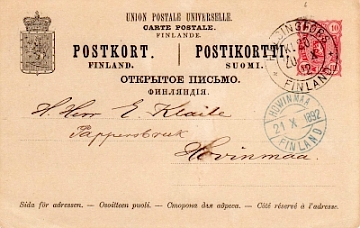 UNION POSTALE UNIVERSELLE.
CARTE POSTALE.
FINLANDE.
POSTKORT. POSTIKORTTI
FINLAND. SUOMI.
ОТКРЫТОЕ ПИСЬМО.
ФИНЛЯНДІЯ.
10
FINLAND
H. Herr E. Klaile
Pappersbruk
Hovinmaa.
HOWINMAA
21 X 1892
FINLAND
Sida för adressen. — Osoitteen puoli. — Сторона для адреса. — Côté réservé à l'adresse.